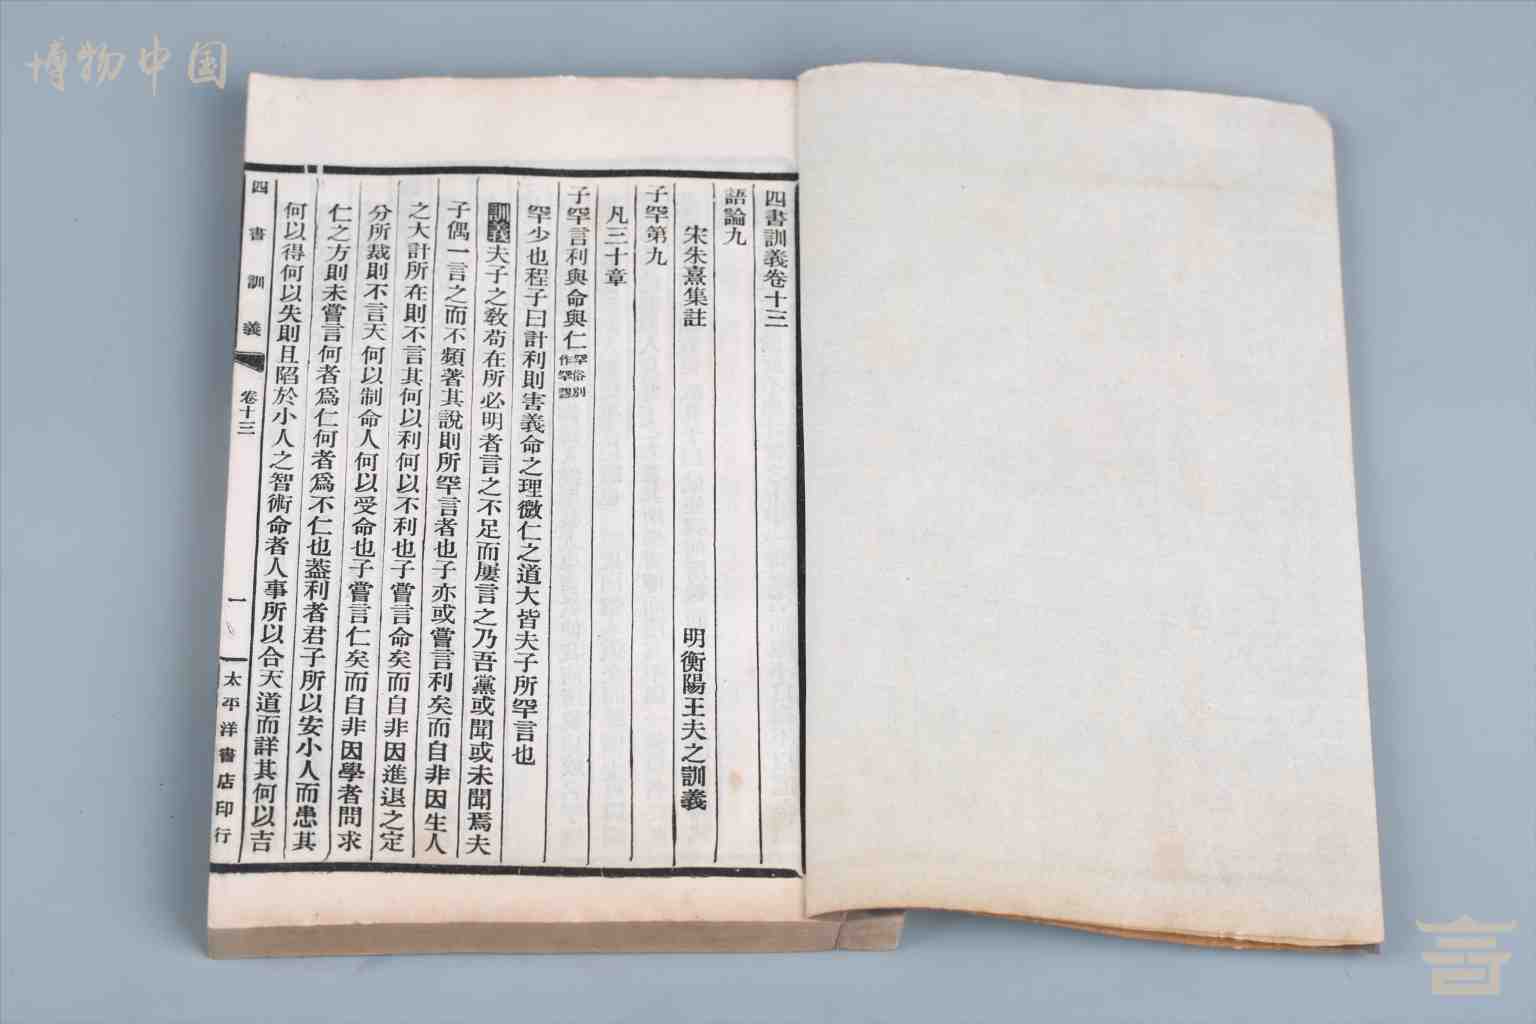 博物中国
四書訓義卷十三
語論九
宋朱熹集註 明衡陽王夫之訓義
子罕第九
凡三十章
子罕言利與命與仁罕俗別作罕謬
罕少也程子曰計利則害義命之理微仁之道大皆夫子所罕言也
訓義夫子之敎苟在所必明者言之不足而屢言之乃吾黨或聞或未聞焉夫
子偶一言之而不頻著其說則所罕言者也子亦或嘗言利矣而自非因生人
之大計所在則不言其何以利何以不利也子嘗言命矣而自非因進退之定
分所裁則不言天何以制命人何以受命也子嘗言仁矣而自非因學者問求
仁之方則未嘗言何者爲仁何者爲不仁也葢利者君子所以安小人而患其
何以得何以失則且陷於小人之智術命者人事所以合天道而詳其何以吉
四書訓義 卷十三 一 太平洋書店印行